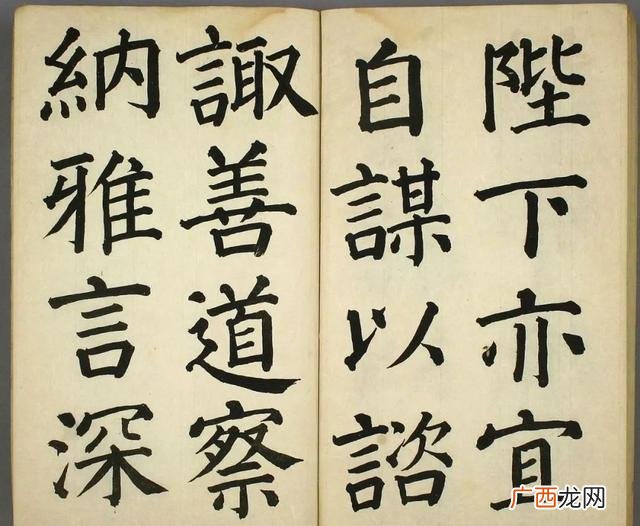 陛下亦宜
自謀以諮
諏善道察
納雅言深
广西龙网